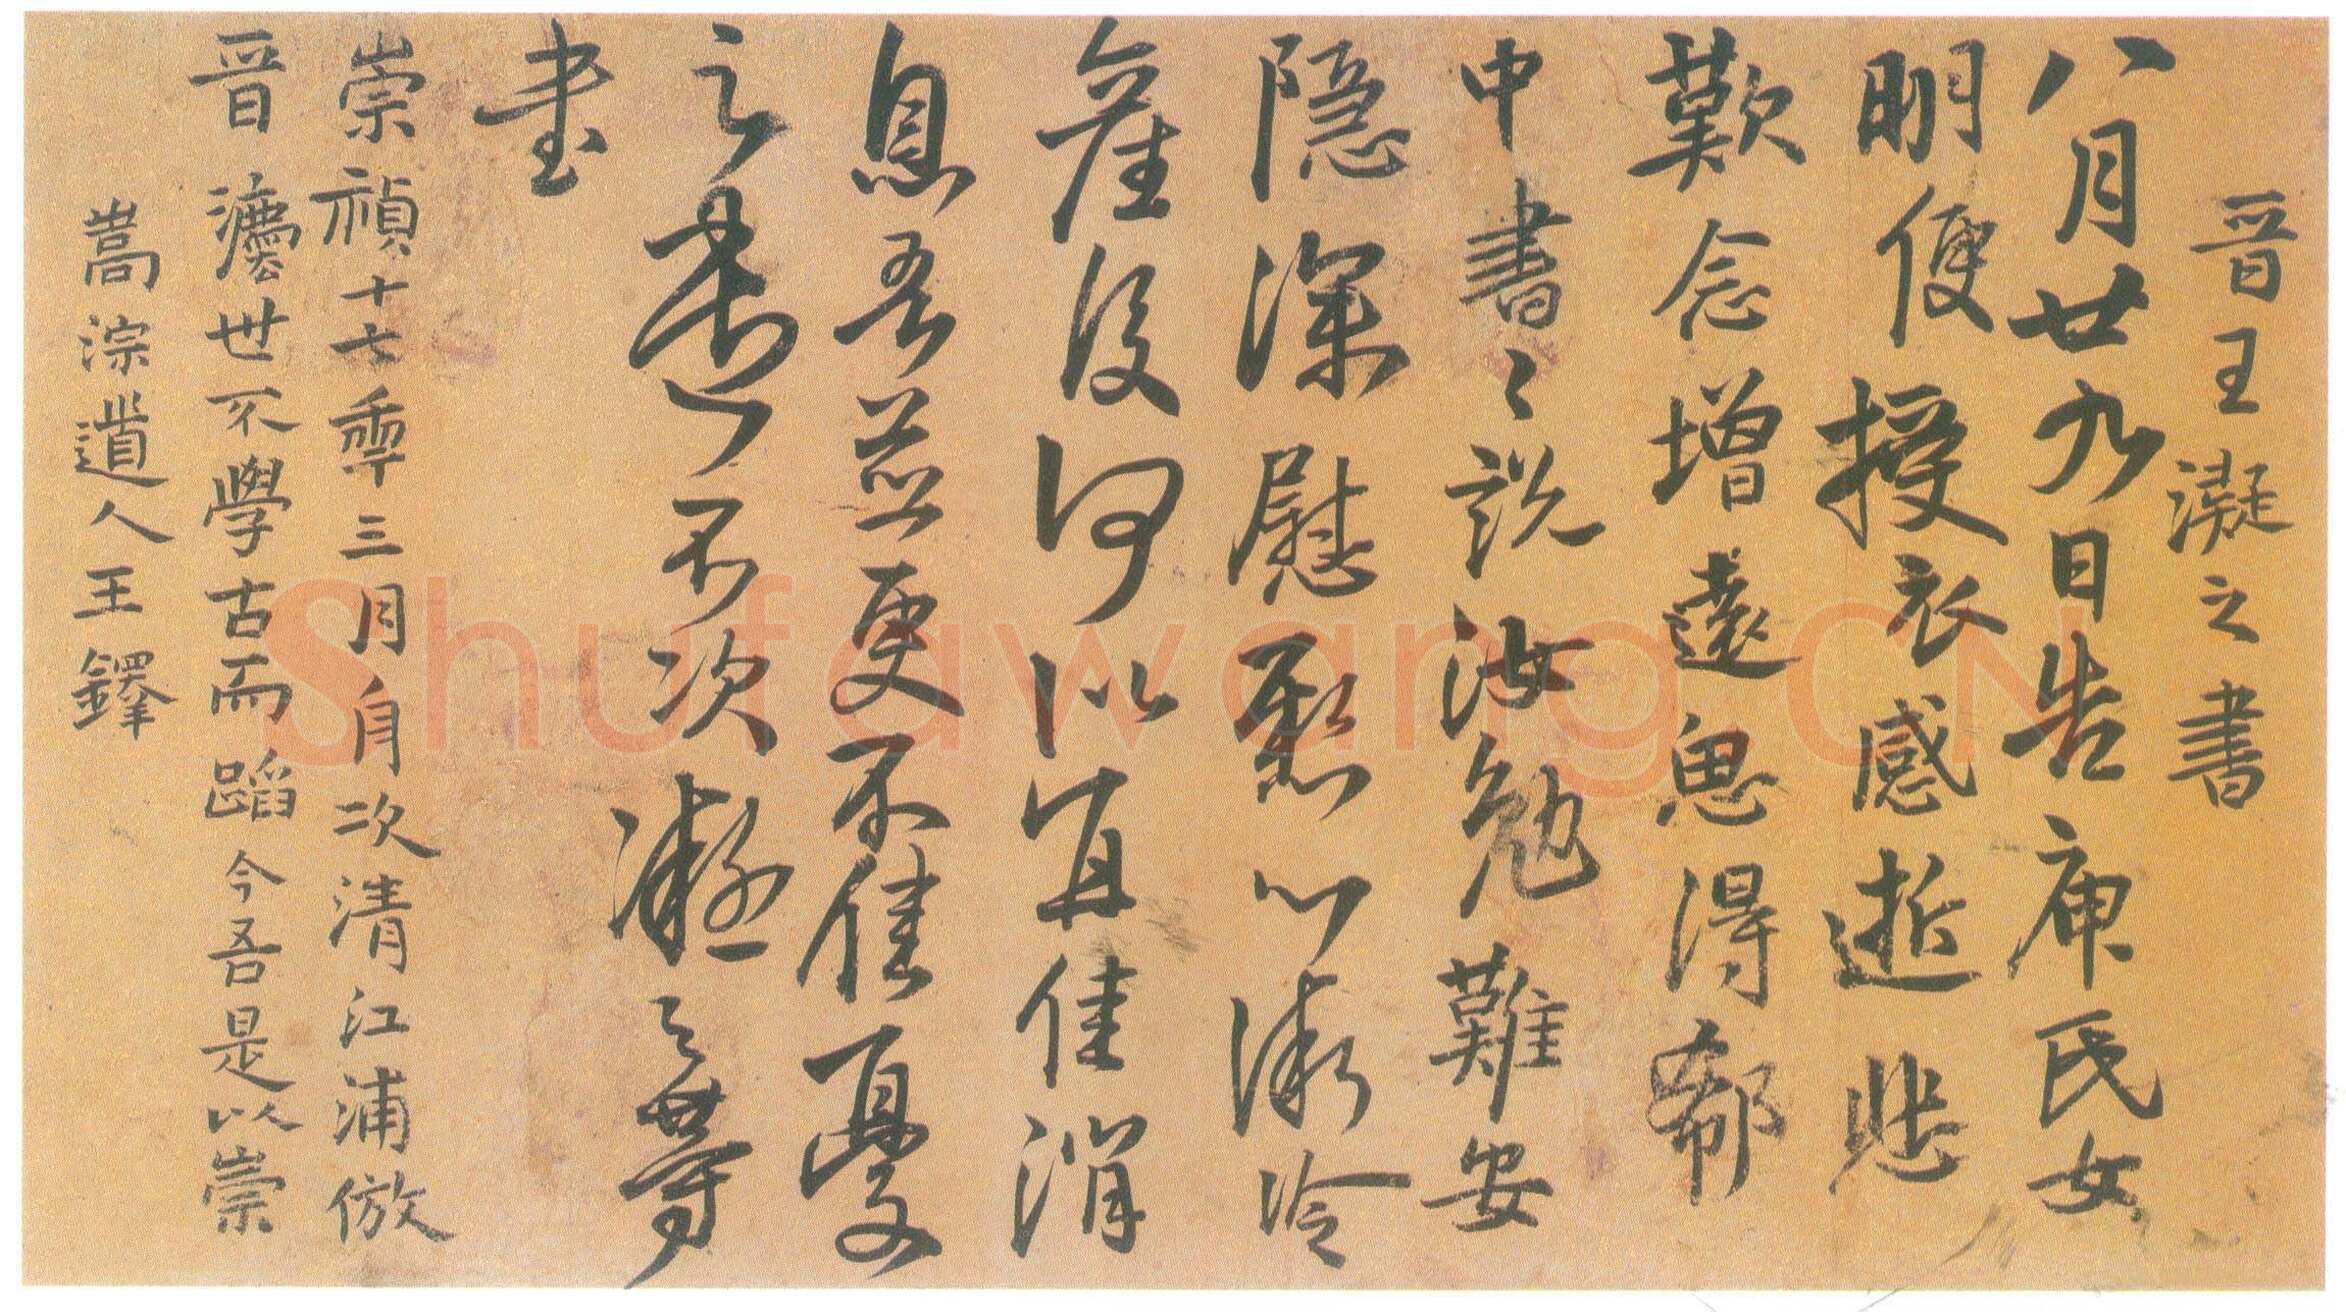 晉王凝之書
八月廿九日告庾氏女
明便授衣感逝悲
歎念增遠思得郗
中書書說汝勉難安
隱深慰懸心漸冷
產後何似宜佳消
息吾並更不佳憂
之極不次凝之等
書
崇禎十七年三月舟次清江浦倣
晉灋世不學古而蹈今吾是以崇
嵩淙道人王鐸
Shufawang.CN